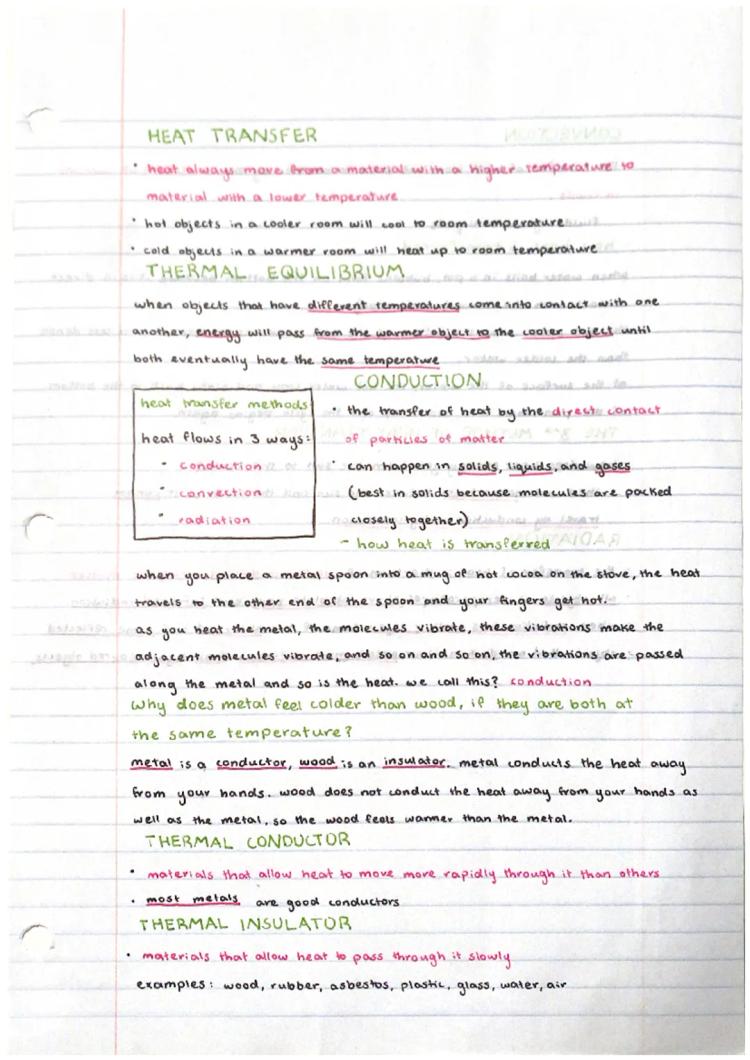 HEAT TRANSFER
• heat always move from a material with a higher temperature to
material with a lower temperature
• hot objects in a cooler room will cool to room temperature
• cold objects in a warmer room will heat up to room temperature
THERMAL EQUILIBRIUM
when objects that have different temperatures come into contact with one
another, energy will pass from the warmer object to the cooler object until
both eventually have the same temperature
heat transfer methods
heat flows in 3 ways:
• conduction
• convection
• radiation
CONDUCTION
• the transfer of heat by the direct contact
of particles of matter
• can happen in solids, liquids, and gases
(best in solids because molecules are packed
closely together)
- how heat is transferred
when you place a metal spoon into a mug of hot cocoa on the stove, the heat
travels to the other end of the spoon and your fingers get hot.
as you heat the metal, the molecules vibrate, these vibrations make the
adjacent molecules vibrate, and so on and so on, the vibrations are passed
along the metal and so is the heat. we call this? conduction
why does metal feel colder than wood, if they are both at
the same temperature?
metal is a conductor, wood is an insulator. metal conducts the heat away
from your hands. wood does not conduct the heat away from your hands as
well as the metal, so the wood feels warmer than the metal.
THERMAL CONDUCTOR
• materials that allow heat to move more rapidly through it than others
• most metals are good conductors
THERMAL INSULATOR
• materials that allow heat to pass through it slowly
examples: wood, rubber, asbestos, plastic, glass, water, air